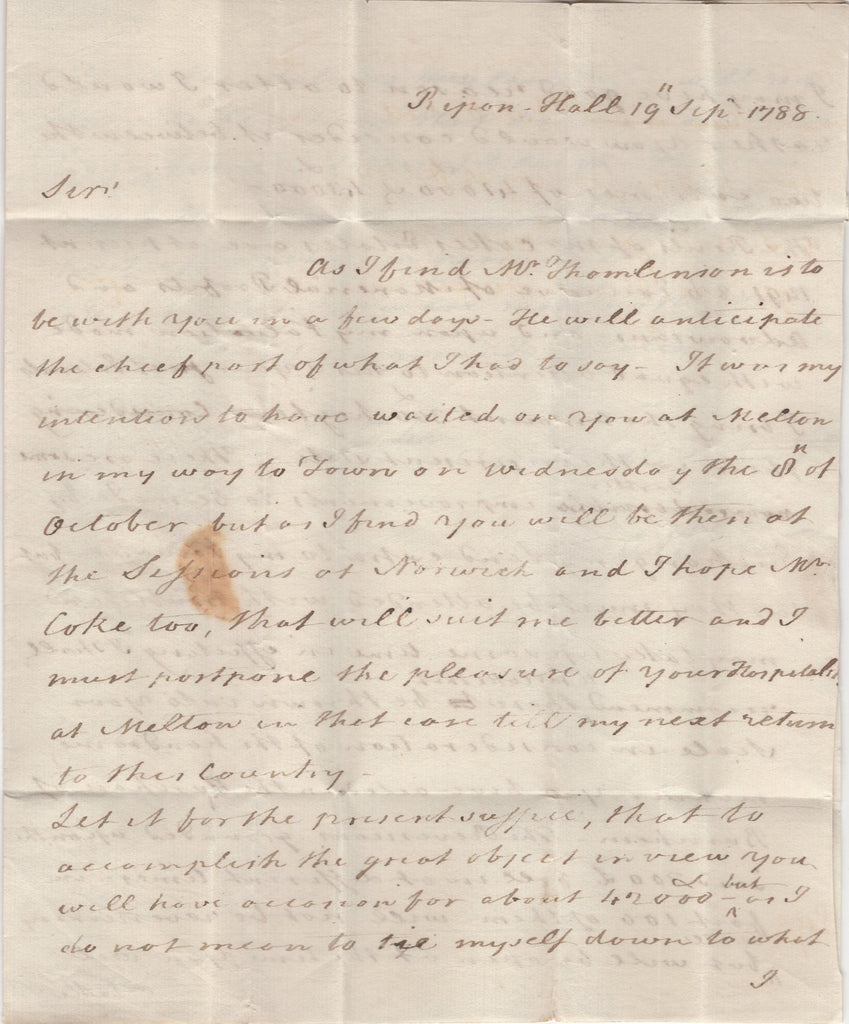 Ripon - Hall 19th Sepr 1788.
Sir!
As I find Mr. Thomlinson is to
be with you in a few days - He will anticipate
the cheef part of what I had to say - It was my
intention to have waited on you at Melton
in my way to Town on Wednesday the 8th of
October, but as I find you will be then at
the Sessions at Norwich and I hope Mr.
Coke too, that will suit me better and I
must postpone the pleasure of your Hospitali
at Melton in that case till my next return
to this Country -
Let it for the present suffice, that to
accomplish the great object in view you
will have occasion for about 42000£ - but as I
do not mean to tie myself down to what
I